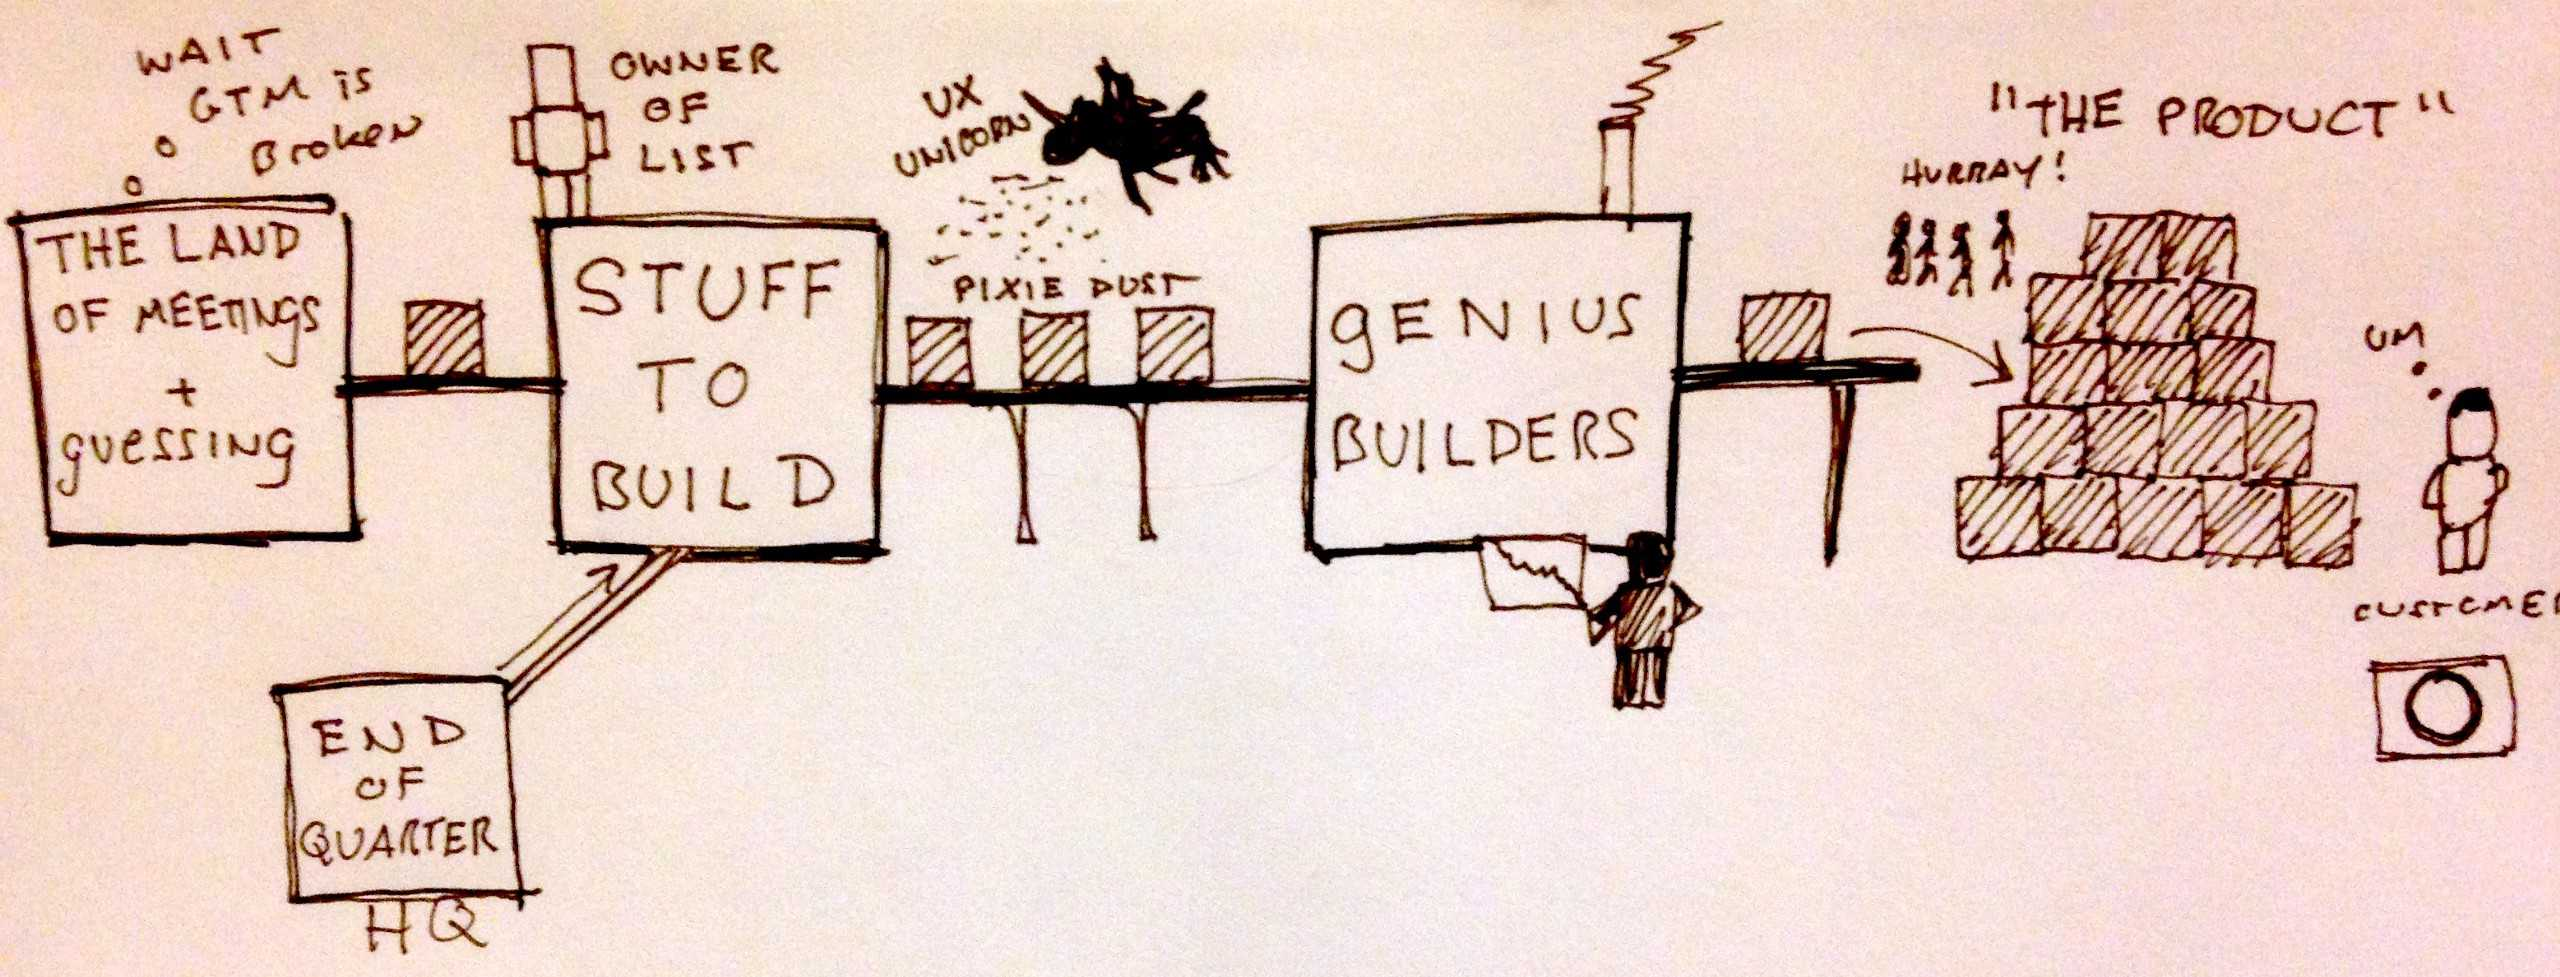 WAIT
GTM is
Broken
THE LAND
OF MEETINGS
+
guessing
OWNER
OF
LIST
STUFF
TO
BUILD
END
OF
QUARTER
HQ
UX
UNICORN
PIXIE DUST
gENIUS
BUILDERS
"THE PRODUCT"
HURRAY!
UM
CUSTOMER